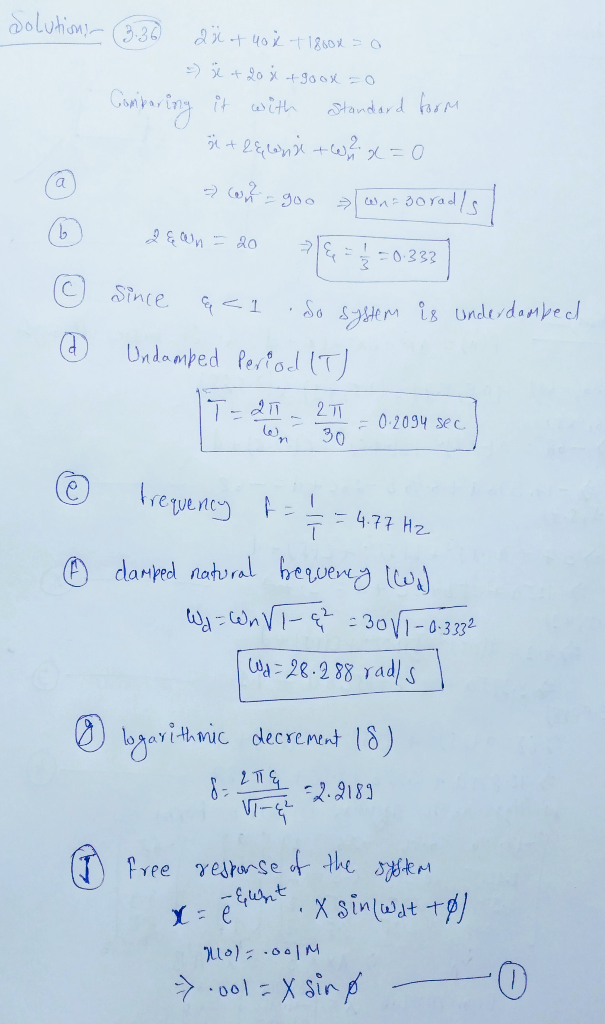 Solution:- (3.36) 2ẍ + 40ẋ + 1800x = 0
⇒ ẍ + 20ẋ + 900x = 0
Comparing it with standard form
ẍ + 2ξωnẋ + ωn² x = 0
(a) ⇒ ωn² = 900 ⇒ ωn = 30 rad/s
(b) 2ξωn = 20 ⇒ ξ = 1/3 = 0.333
(c) Since ξ < 1 . So system is underdamped
(d) Undamped Period (T)
T = 2π/ωn = 2π/30 = 0.2094 sec
(e) frequency f = 1/T = 4.77 Hz
(f) damped natural frequency (ωd)
ωd = ωn√(1-ξ²) = 30√(1-0.333²)
ωd = 28.288 rad/s
(g) logarithmic decrement (δ)
δ = 2πξ/√(1-ξ²) = 2.2189
(J) free response of the system
x = e^(-ξωnt) . X sin(ωdt + ϕ)
x(0) = .001M
⇒ .001 = X sin ϕ —— (1)